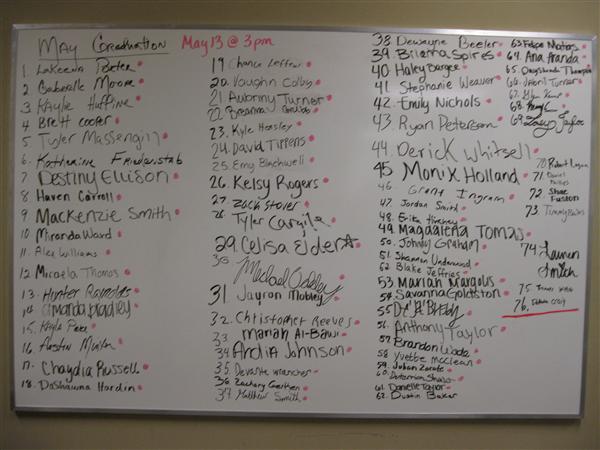 May Graduation May 13 @ 3pm
1. Lakeena Porter
2 Gabrielle Moore
3 Kaylie Huffine
4 Brett Cooper
5 Tyler Massengill
6. Katherine
7 Destiny Ellison
8 Haven Carroll
9 Mackenzie Smith
10 Miranda Ward
11. Alex Williams
12 Micaela Thomas
13. Hunter
14 Amanda Bradley
15. Kayla
16. Austin
17. Chaydia Russell
18. DaShauna Hardin
19 Chance Leffew
20. Vaughn Colby
21 Autumny Turner
22 Breanna Grubb
23. Kyle Hensley
24. David Tippens
25. Emy Blackwell
26. Kelsy Rogers
27. Zack Stover
28. Tyler Cargile
29 Celisa Elder
30. Michael Oakley
31 Jayron Mobley
32. Christopher Reeves
33 Mariah Al-Bawi
34 Ardia Johnson
35. Devante
36 Zachary Gerken
37. Matthew Smith
38 Dewayne Beeler
39. Brianna Spires
40 Haley Barger
41 Stephanie Weaver
42. Emily Nichols
43 Ryan Peterson
44. Derick Whitsell
45 Monix Holland
46. Grant Ingram
47. Jordan Smith
48. Erika
49 Magdalena Tomas
50. Johnny Graham
51. Shannon Underwood
52 Blake Jeffries
53 Mariah Margolis
54 Savanna Goldston
55
56. Anthony Taylor
57. Brandon Wade
58 Yvette McClean
59. Julian Zarate
60. Shaw
61. Danielle Taylor
62. Dustin Baker
63 Felipe Mateos
64. Ana Aranda
65. Thompson
66. Jabril Turner
67.
68.
69. Lacey Taylor
70. Robert Logan
71. Daniel
72. Shae Fuston
73. Timmy Bates
74. Lauren Smith
75
76.